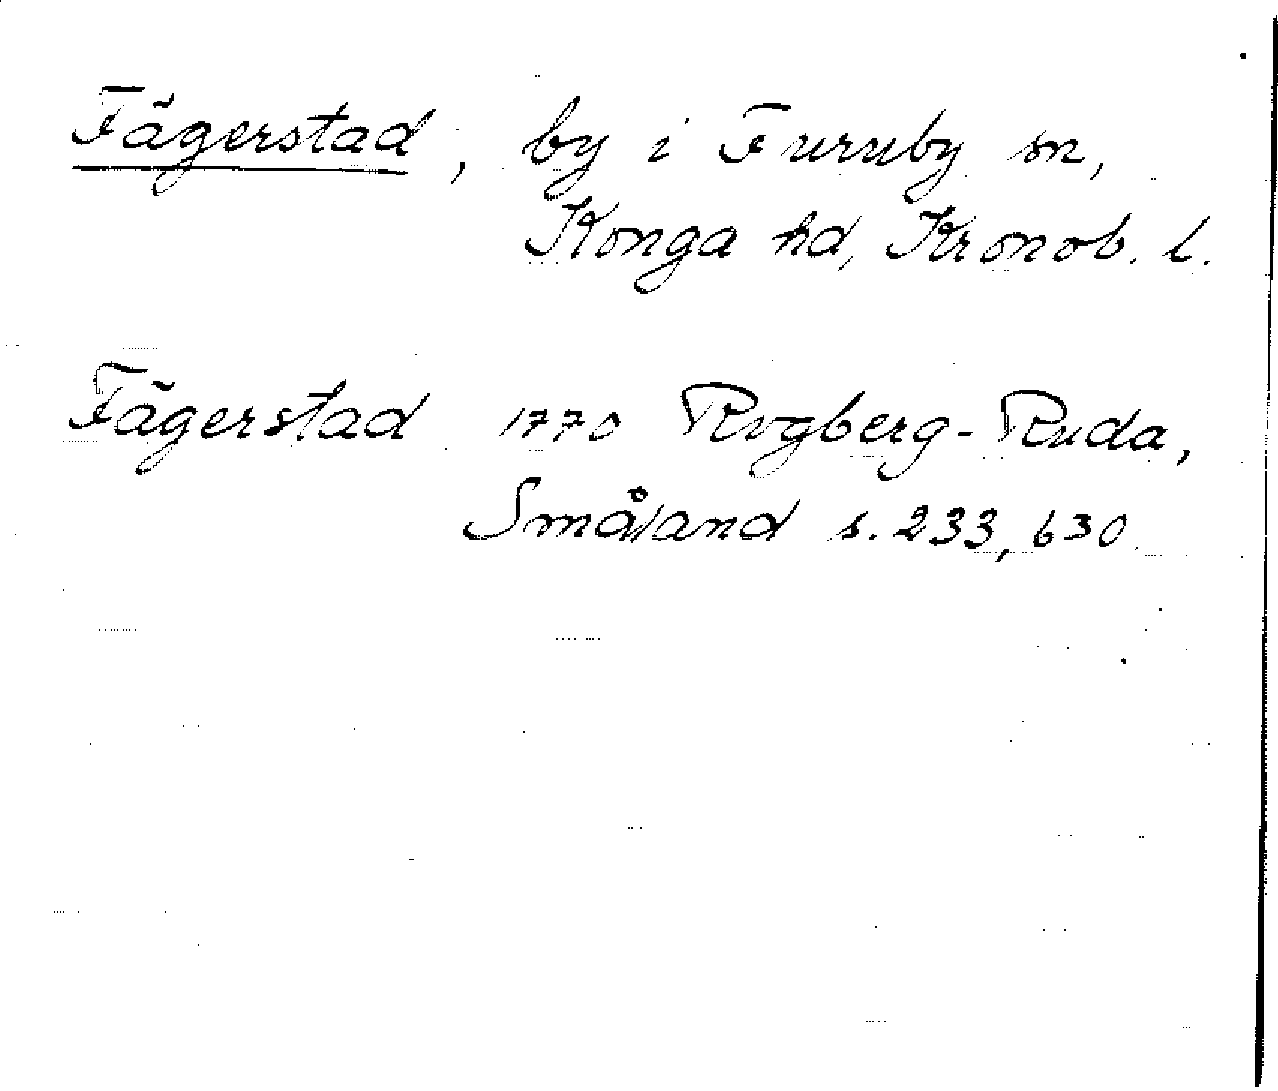 Fägerstad, by i Furuby sn,
Konga hd, Kronob. l.
Fägerstad 1770 Rogberg-Ruda,
Småland s. 233, 630